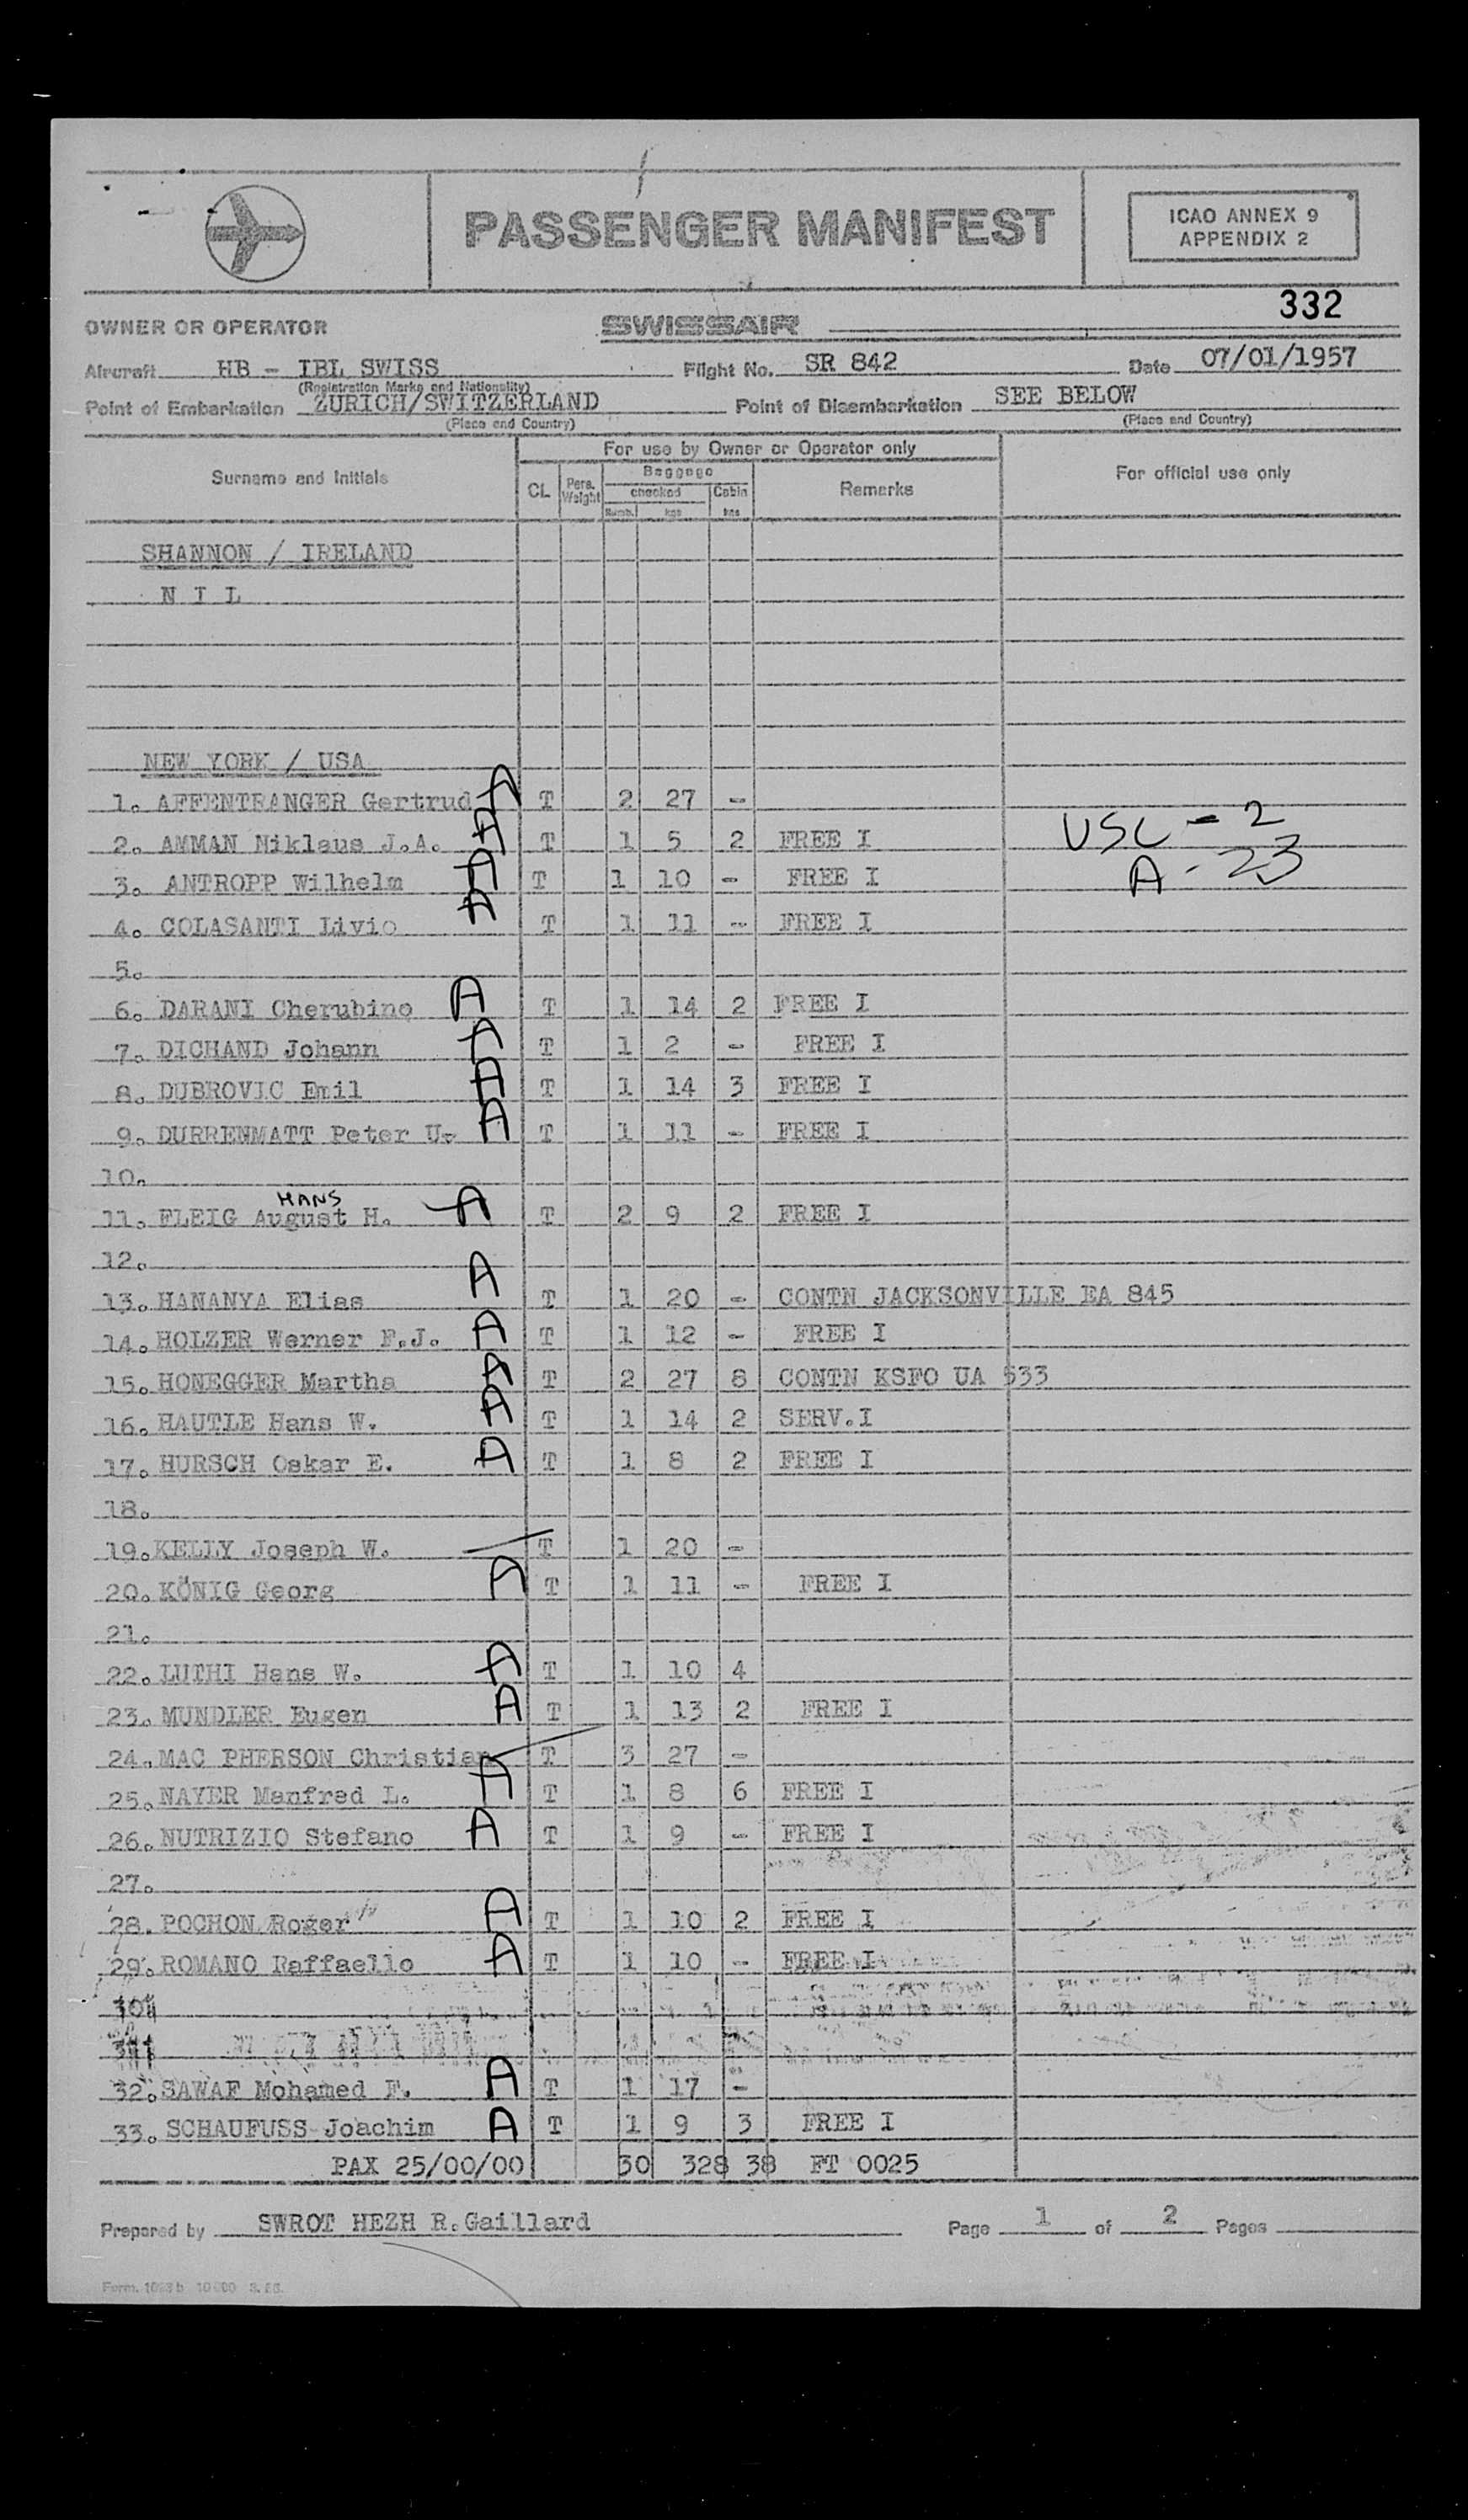 PASSENGER MANIFEST
ICAO ANNEX 9
APPENDIX 2
332
OWNER OR OPERATOR SWISSAIR
Aircraft HB - IBL SWISS Flight No. SR 842 Date 07/01/1957
(Registration Marks and Nationality)
Point of Embarkation ZURICH/SWITZERLAND Point of Disembarkation SEE BELOW
(Place and Country) (Place and Country)
Surname and Initials For use by Owner or Operator only For official use only
CL Pers. Weight Baggage Remarks
checked Cabin
Numb. kgs kgs
SHANNON / IRELAND
N I L
NEW YORK / USA
1. AFFENTRANGER Gertrud A T 2 27 -
2. AMMAN Niklaus J.A. A T 1 5 2 FREE I USC - 2
3. ANTROPP Wilhelm A T 1 10 - FREE I A - 23
4. COLASANTI Livio A T 1 11 - FREE I
5.
6. DARANI Cherubino A T 1 14 2 FREE I
7. DICHAND Johann A T 1 2 - FREE I
8. DUBROVIC Emil A T 1 14 3 FREE I
9. DURRENMATT Peter U. A T 1 11 - FREE I
10.
HANS
11. FLEIG August H. A T 2 9 2 FREE I
12.
13. HANANYA Elias A T 1 20 - CONTN JACKSONVILLE EA 845
14. HOLZER Werner F.J. A T 1 12 - FREE I
15. HONEGGER Martha A T 2 27 8 CONTN KSFO UA 533
16. HAUTLE Hans W. A T 1 14 2 SERV.I
17. HURSCH Oskar E. A T 1 8 2 FREE I
18.
19. KELLY Joseph W. T 1 20 -
20. KÖNIG Georg A T 1 11 - FREE I
21.
22. LUTHI Hans W. A T 1 10 4
23. MUNDLER Eugen A T 1 13 2 FREE I
24. MAC PHERSON Christian T 3 27 -
25. NAYER Manfred L. A T 1 8 6 FREE I
26. NUTRIZIO Stefano A T 1 9 - FREE I
27.
28. POCHON Roger A T 1 10 2 FREE I
29. ROMANO Raffaello A T 1 10 - FREE I
30.
31.
32. SAWAF Mohamed F. A T 1 17 -
33. SCHAUFUSS Joachim A T 1 9 3 FREE I
PAX 25/00/00 30 328 38 FT 0025
Prepared by SWROT HEZH R.Gaillard Page 1 of 2 Pages
Form. 1093 b 10 000